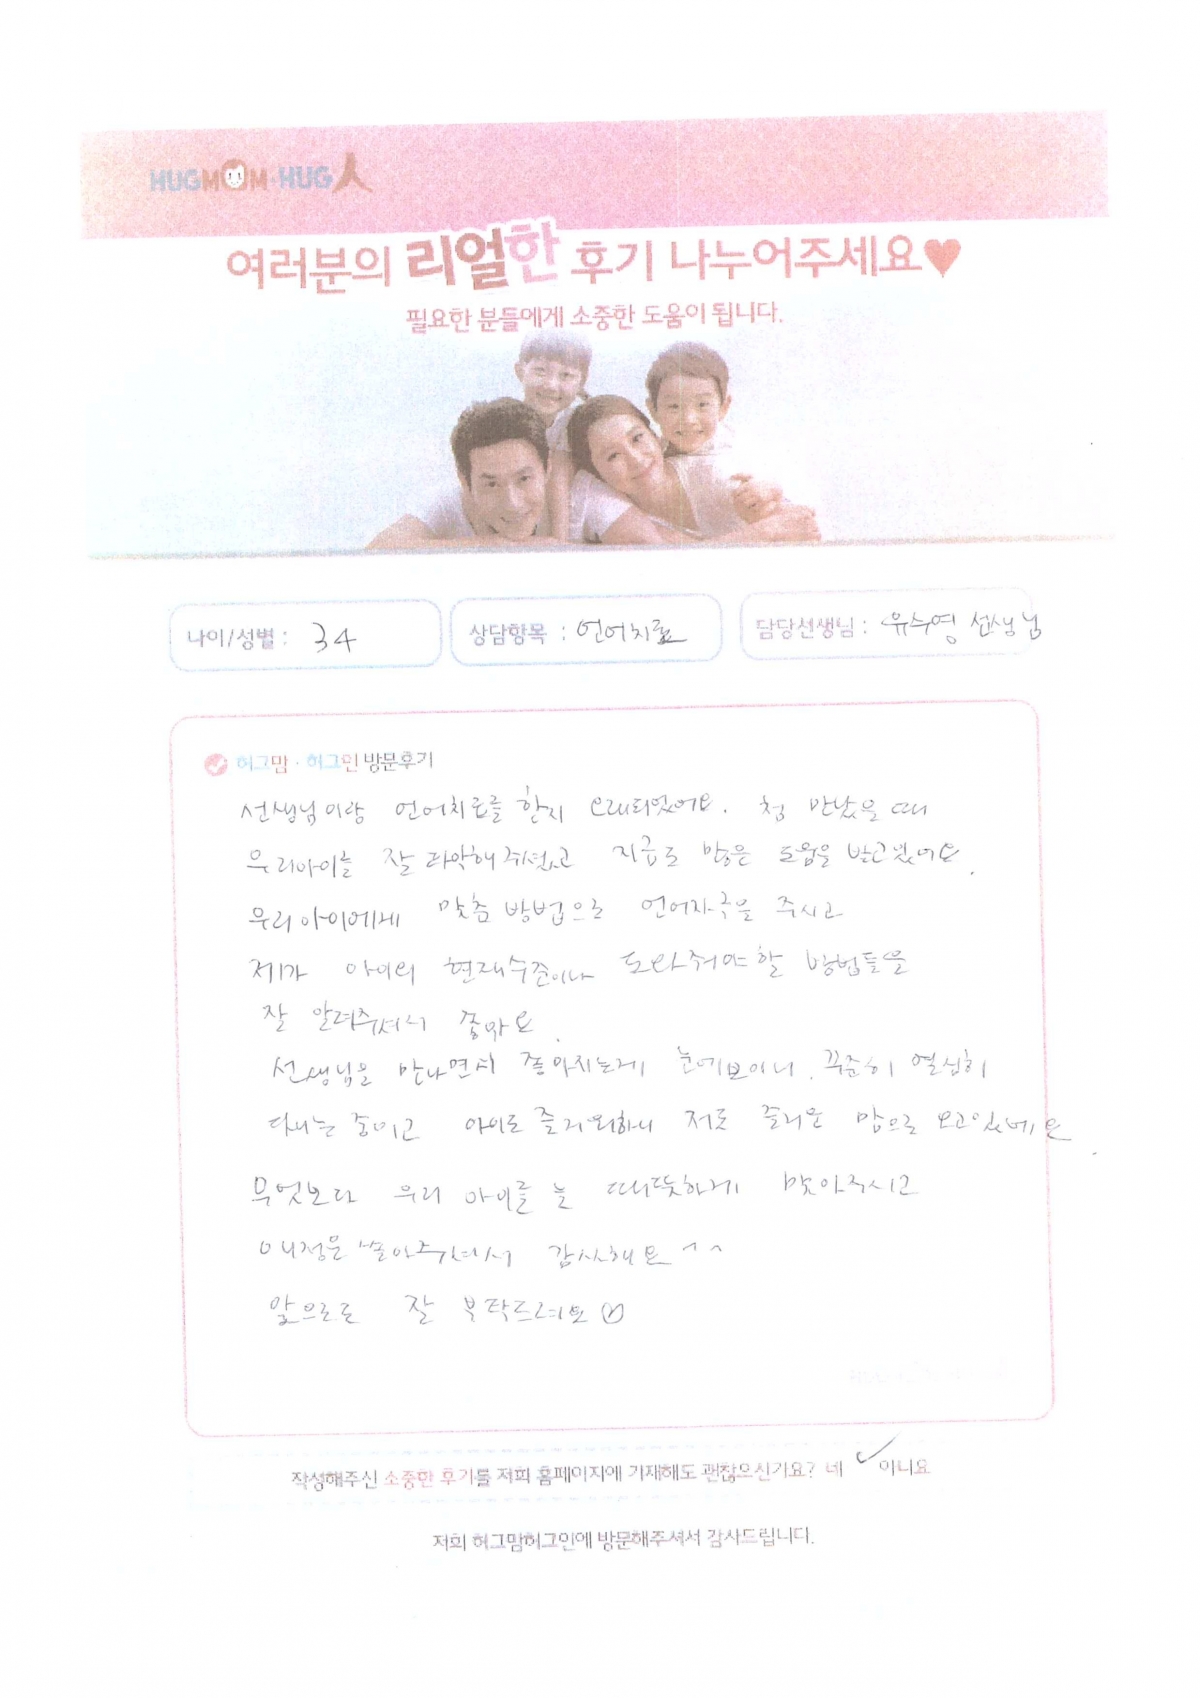 HUGMOM·HUG人
여러분의 리얼한 후기 나누어주세요♥
필요한 분들에게 소중한 도움이 됩니다.
나이/성별 : 34
상담항목 : 언어치료
담당선생님 : 유수영 선생님
허그맘 · 허그인 방문후기
선생님이랑 언어치료를 한지 오래되었어요. 첨 만났을 때
우리아이를 잘 파악해 주셨고 지금도 많은 도움을 받고있어요.
우리 아이에게 맞춤 방법으로 언어자극을 주시고
제가 아이의 현재수준이나 도와줘야 할 방법들을
잘 알려주셔서 좋아요.
선생님을 만나면서 좋아지는게 눈에보이니. 꾸준히 열심히
다니는 중이고 아이도 즐거워하니 저도 즐거운 맘으로 오고있네요.
무엇보다 우리 아이를 늘 따뜻하게 맞아주시고
애정을 쏟아주셔서 감사해요 ^^
앞으로도 잘 부탁드려요
작성해주신 소중한 후기를 저희 홈페이지에 기재해도 괜찮으신가요? 네 ✓ 아니요
저희 허그맘허그인에 방문해주셔서 감사드립니다.